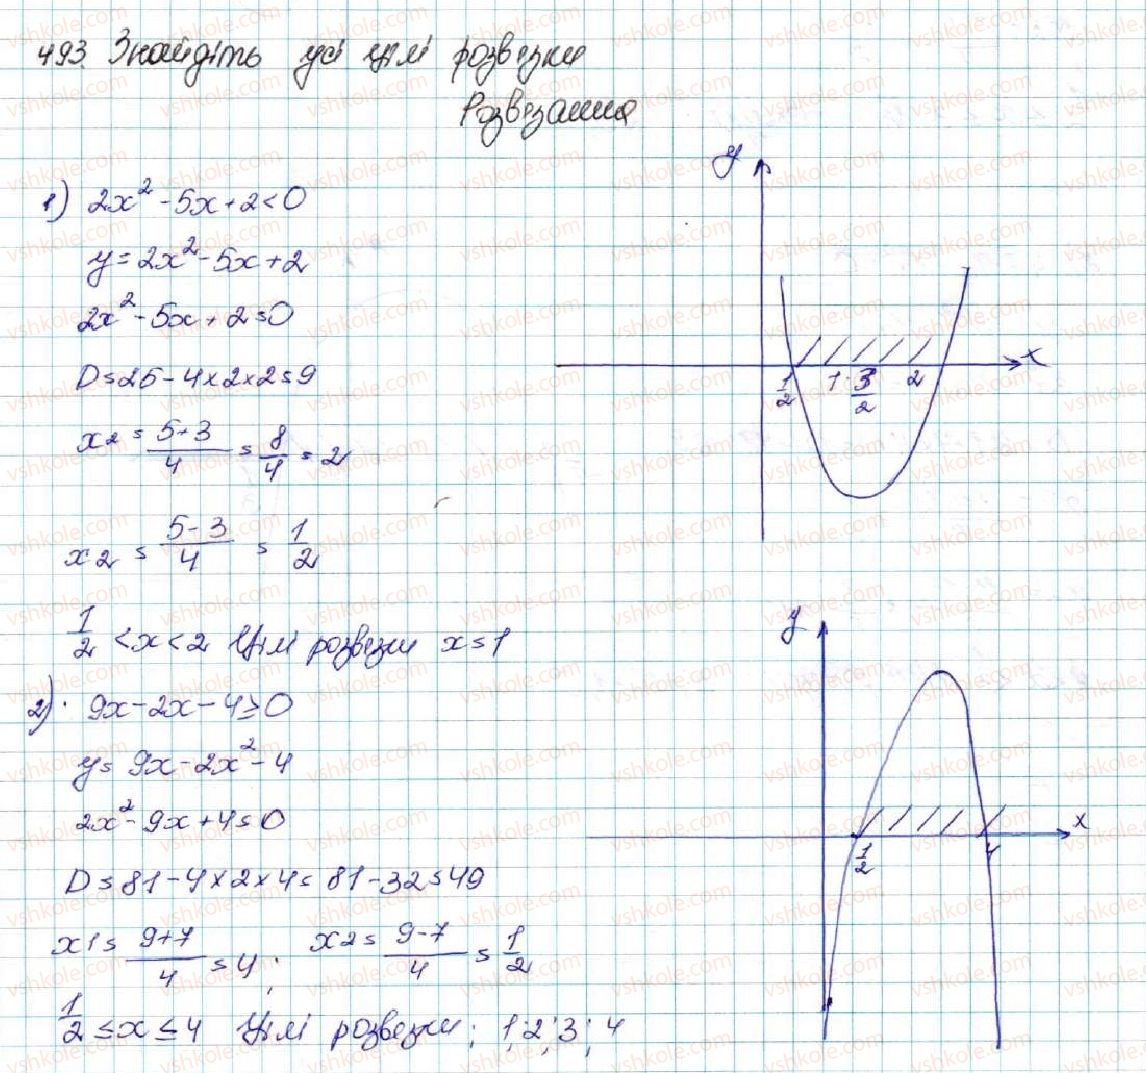 493. Знайдіть усі цілі розвезки
Розвезання
1) 2x² - 5x + 2 < 0
y = 2x² - 5x + 2
2x² - 5x + 2 = 0
D = 25 - 4 × 2 × 2 = 9
x2 = 5+3/4 = 8/4 = 2
x2 = 5-3/4 = 1/2
1/2 < x < 2 Цілі розвезки x = 1
y
x
1/2 1 3/2 2
2) 9x - 2x - 4 ≥ 0
y = 9x - 2x² - 4
2x² - 9x + 4 = 0
D = 81 - 4 × 2 × 4 = 81 - 32 = 49
x1 = 9+7/4 = 4; x2 = 9-7/4 = 1/2
1/2 ≤ x ≤ 4 Цілі розвезки; 1; 2; 3; 4
y
x
1/2 4
vshkole.com